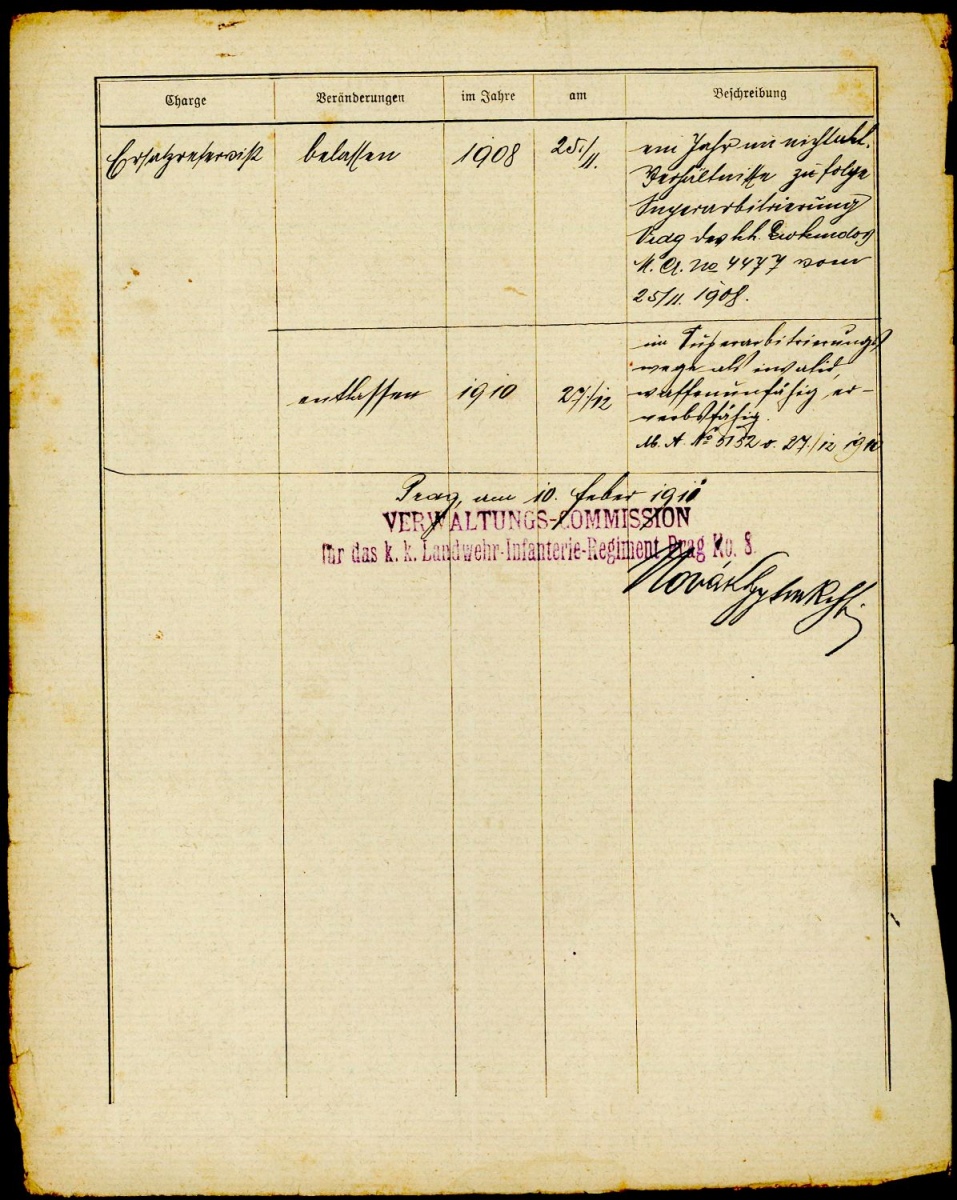 Charge Veränderungen im Jahre am Beschreibung
Ersatzreservist belassen 1908 25./11. ein Jahr im nichtakt.
Verhältnisse zu folge
Superarbitrierung
Prag des k.k.
M. A. No 4477 vom
25/11. 1908.
entlassen 1910 27./12 im Superarbitrierungs
wege als invalid,
waffenunfähig, er-
werbsfähig.
M. A. No 5152 v. 27./12 1910
Prag, am 10. Feber 1911
VERWALTUNGS-COMMISSION
für das k. k. Landwehr-Infanterie-Regiment Prag No. 8.
Novák